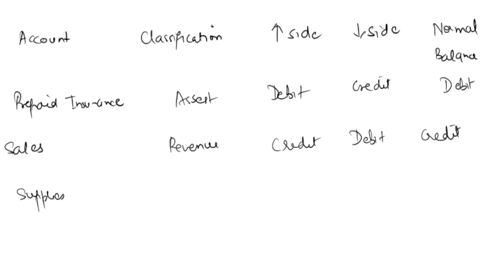 Account Classification ↑ side ↓ side Normal Balance
Prepaid Insurance Assest Debit Credit Debit
Sales Revenue Credit Debit Credit
Supplies